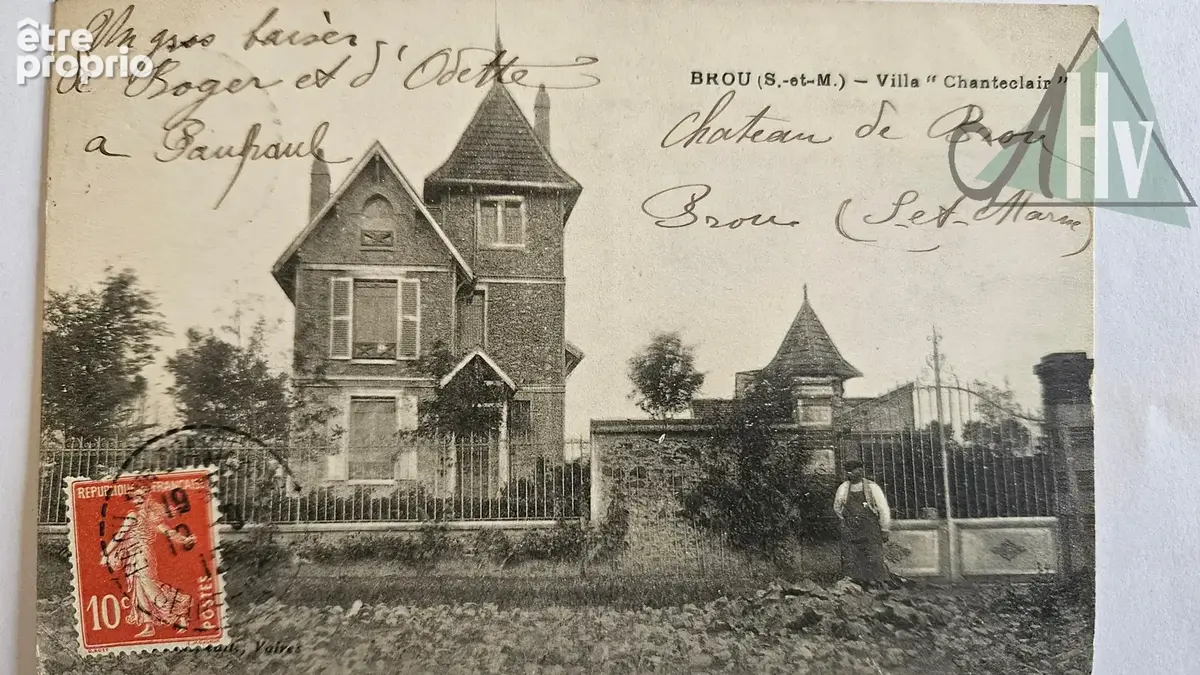 être
proprio
Un gros baiser
de Roger et d'Odette
a Paupaul
BROU (S.-et-M.) — Villa "Chanteclair"
Chateau de Brou
Brou (S. et. Marne)
AHv
REPUBLIQUE FRANÇAISE
19
10c POSTES
Vaires